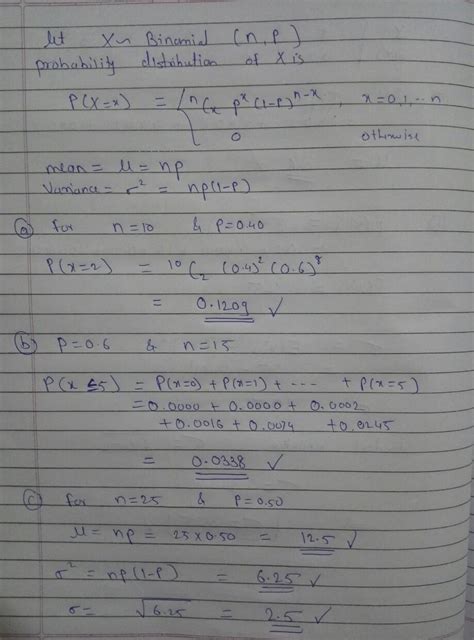 let X ~ Binomial (n, p)
probability distribution of X is
P(X=x) = { ⁿCₓ pˣ (1-p)ⁿ⁻ˣ , x=0,1,..n
0 otherwise
mean = μ = np
Variance = σ² = np(1-p)
(a) for n=10 & p=0.40
P(x=2) = ¹⁰C₂ (0.4)² (0.6)⁸
= 0.1209 ✓
(b) p=0.6 & n=15
P(x ≤5) = P(x=0) + P(x=1) + --- + P(x=5)
= 0.0000 + 0.0000 + 0.0002
+0.0016 + 0.0074 +0.0245
= 0.0338 ✓
(c) for n=25 & p=0.50
μ = np = 25×0.50 = 12.5 ✓
σ² = np(1-p) = 6.25 ✓
σ = √6.25 = 2.5 ✓